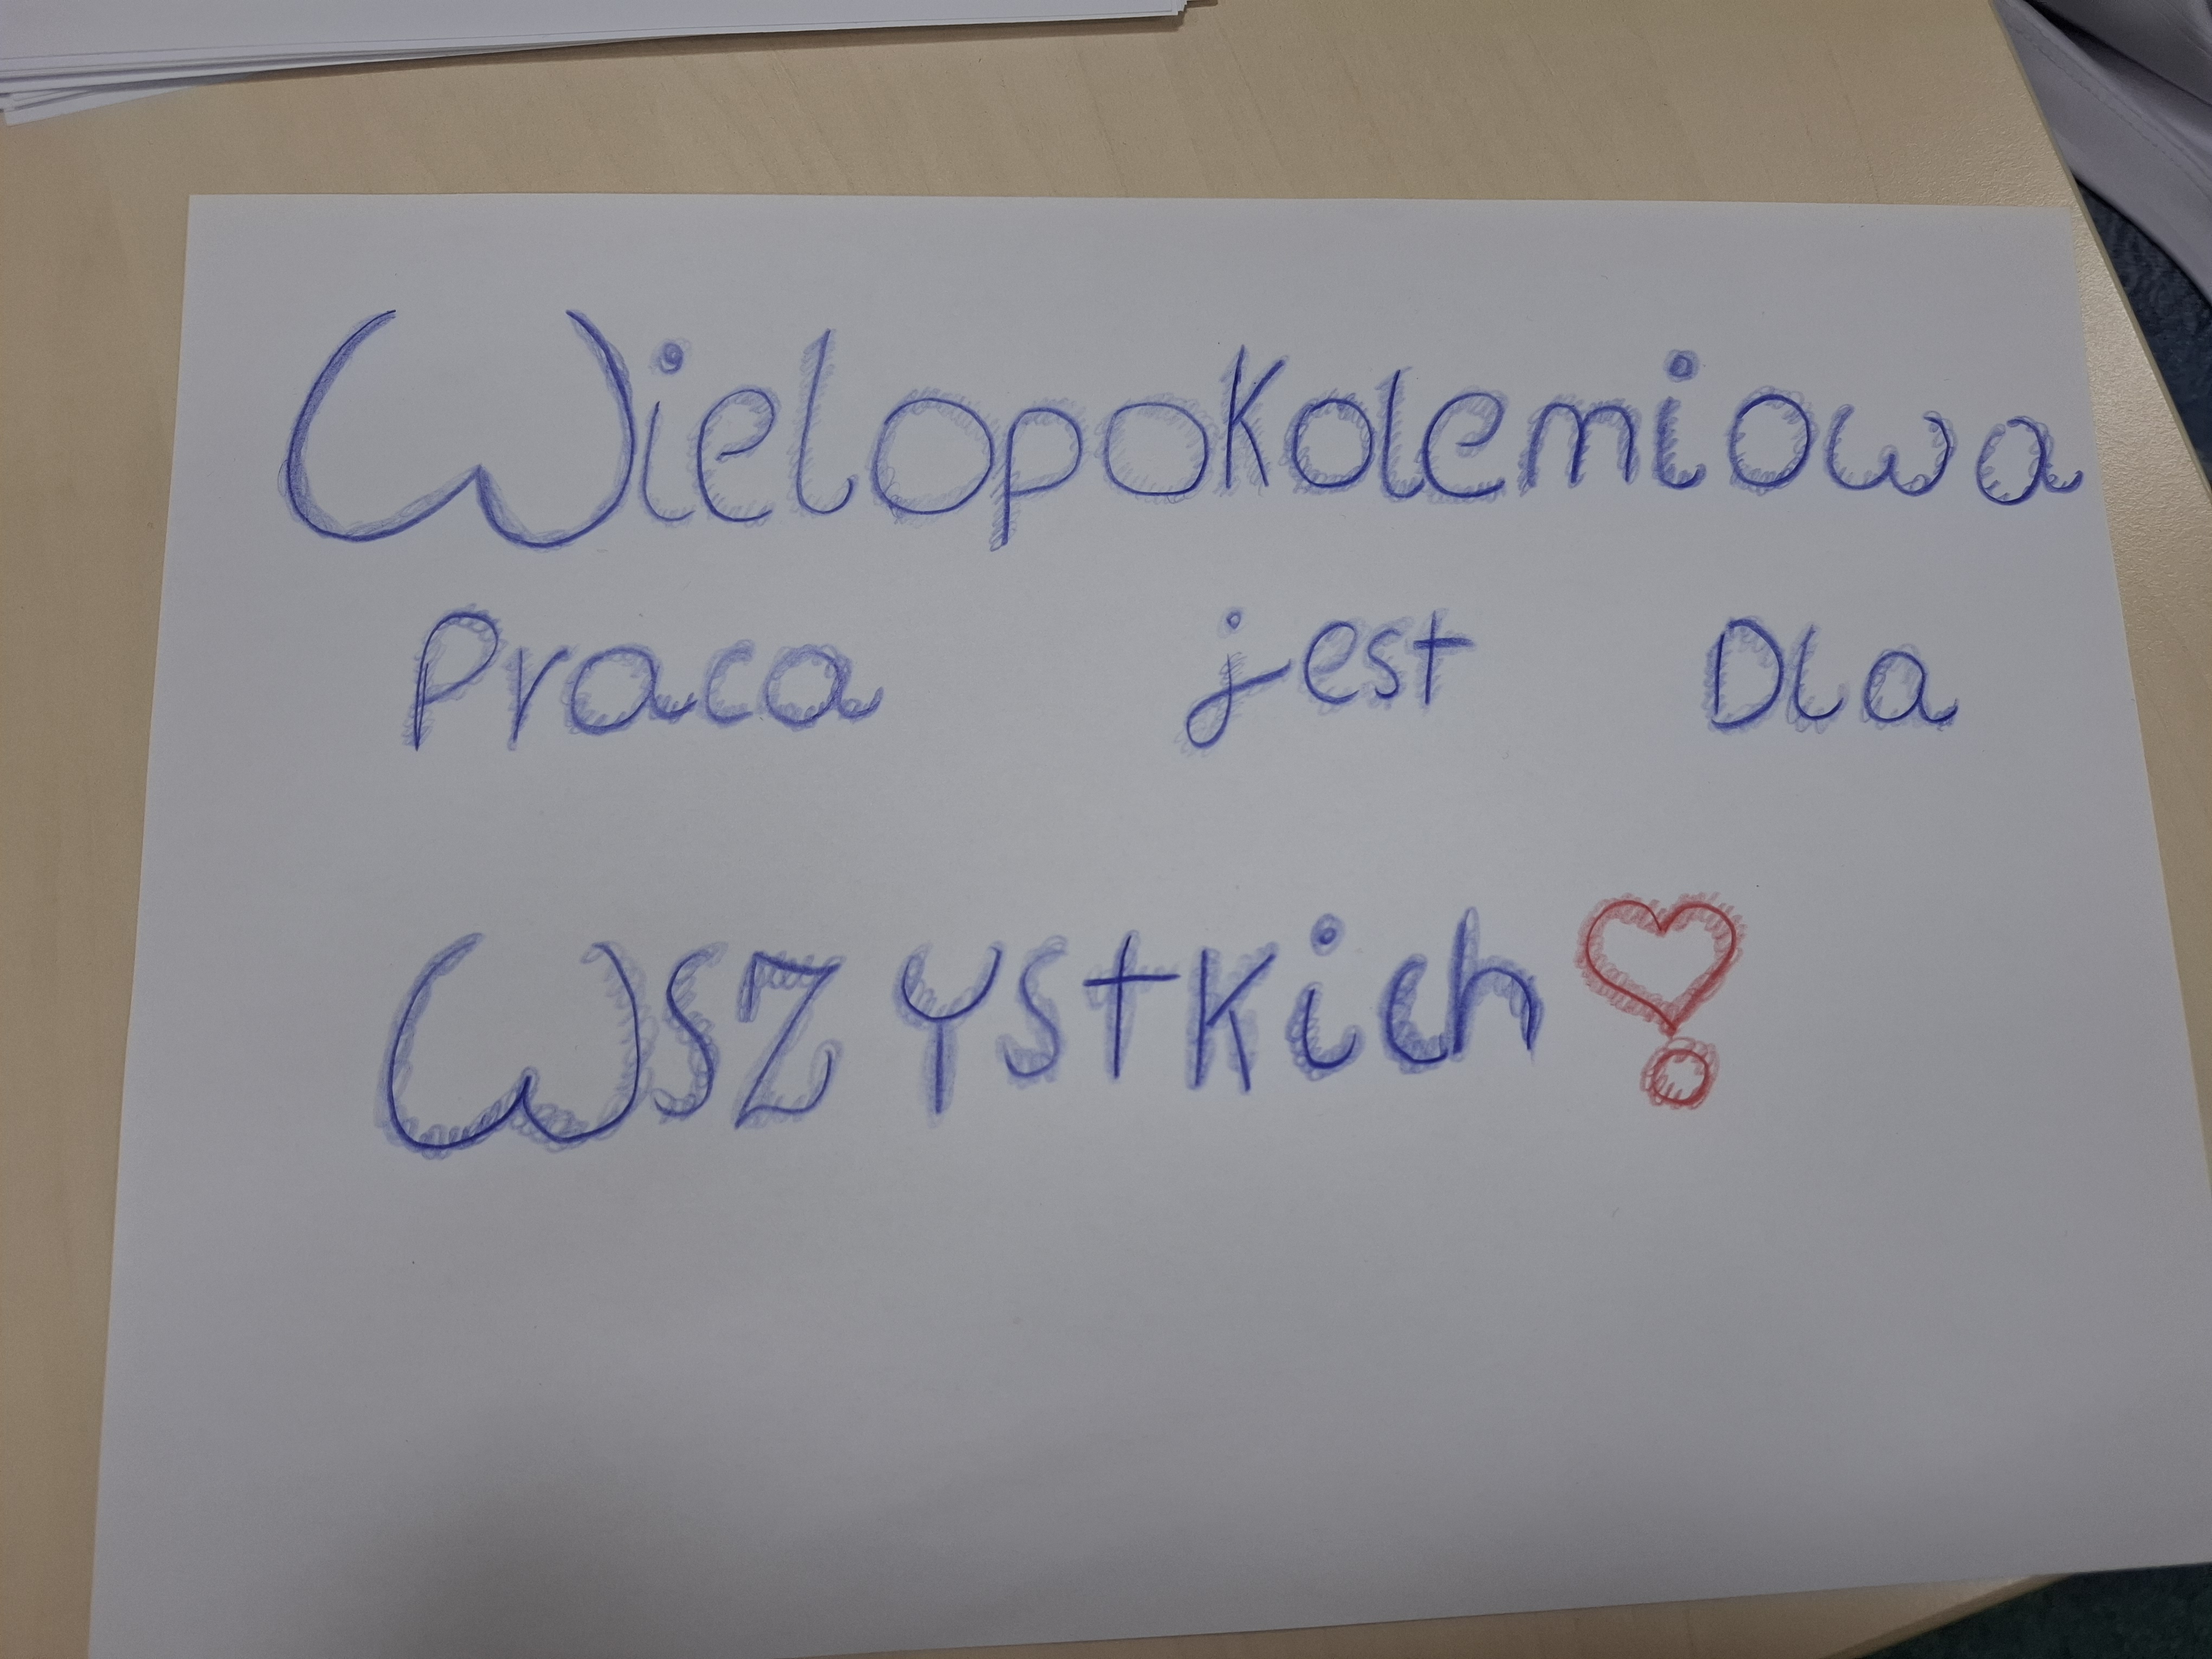 Wielopokoleniowa
Praca jest Dla
Wszystkich❣